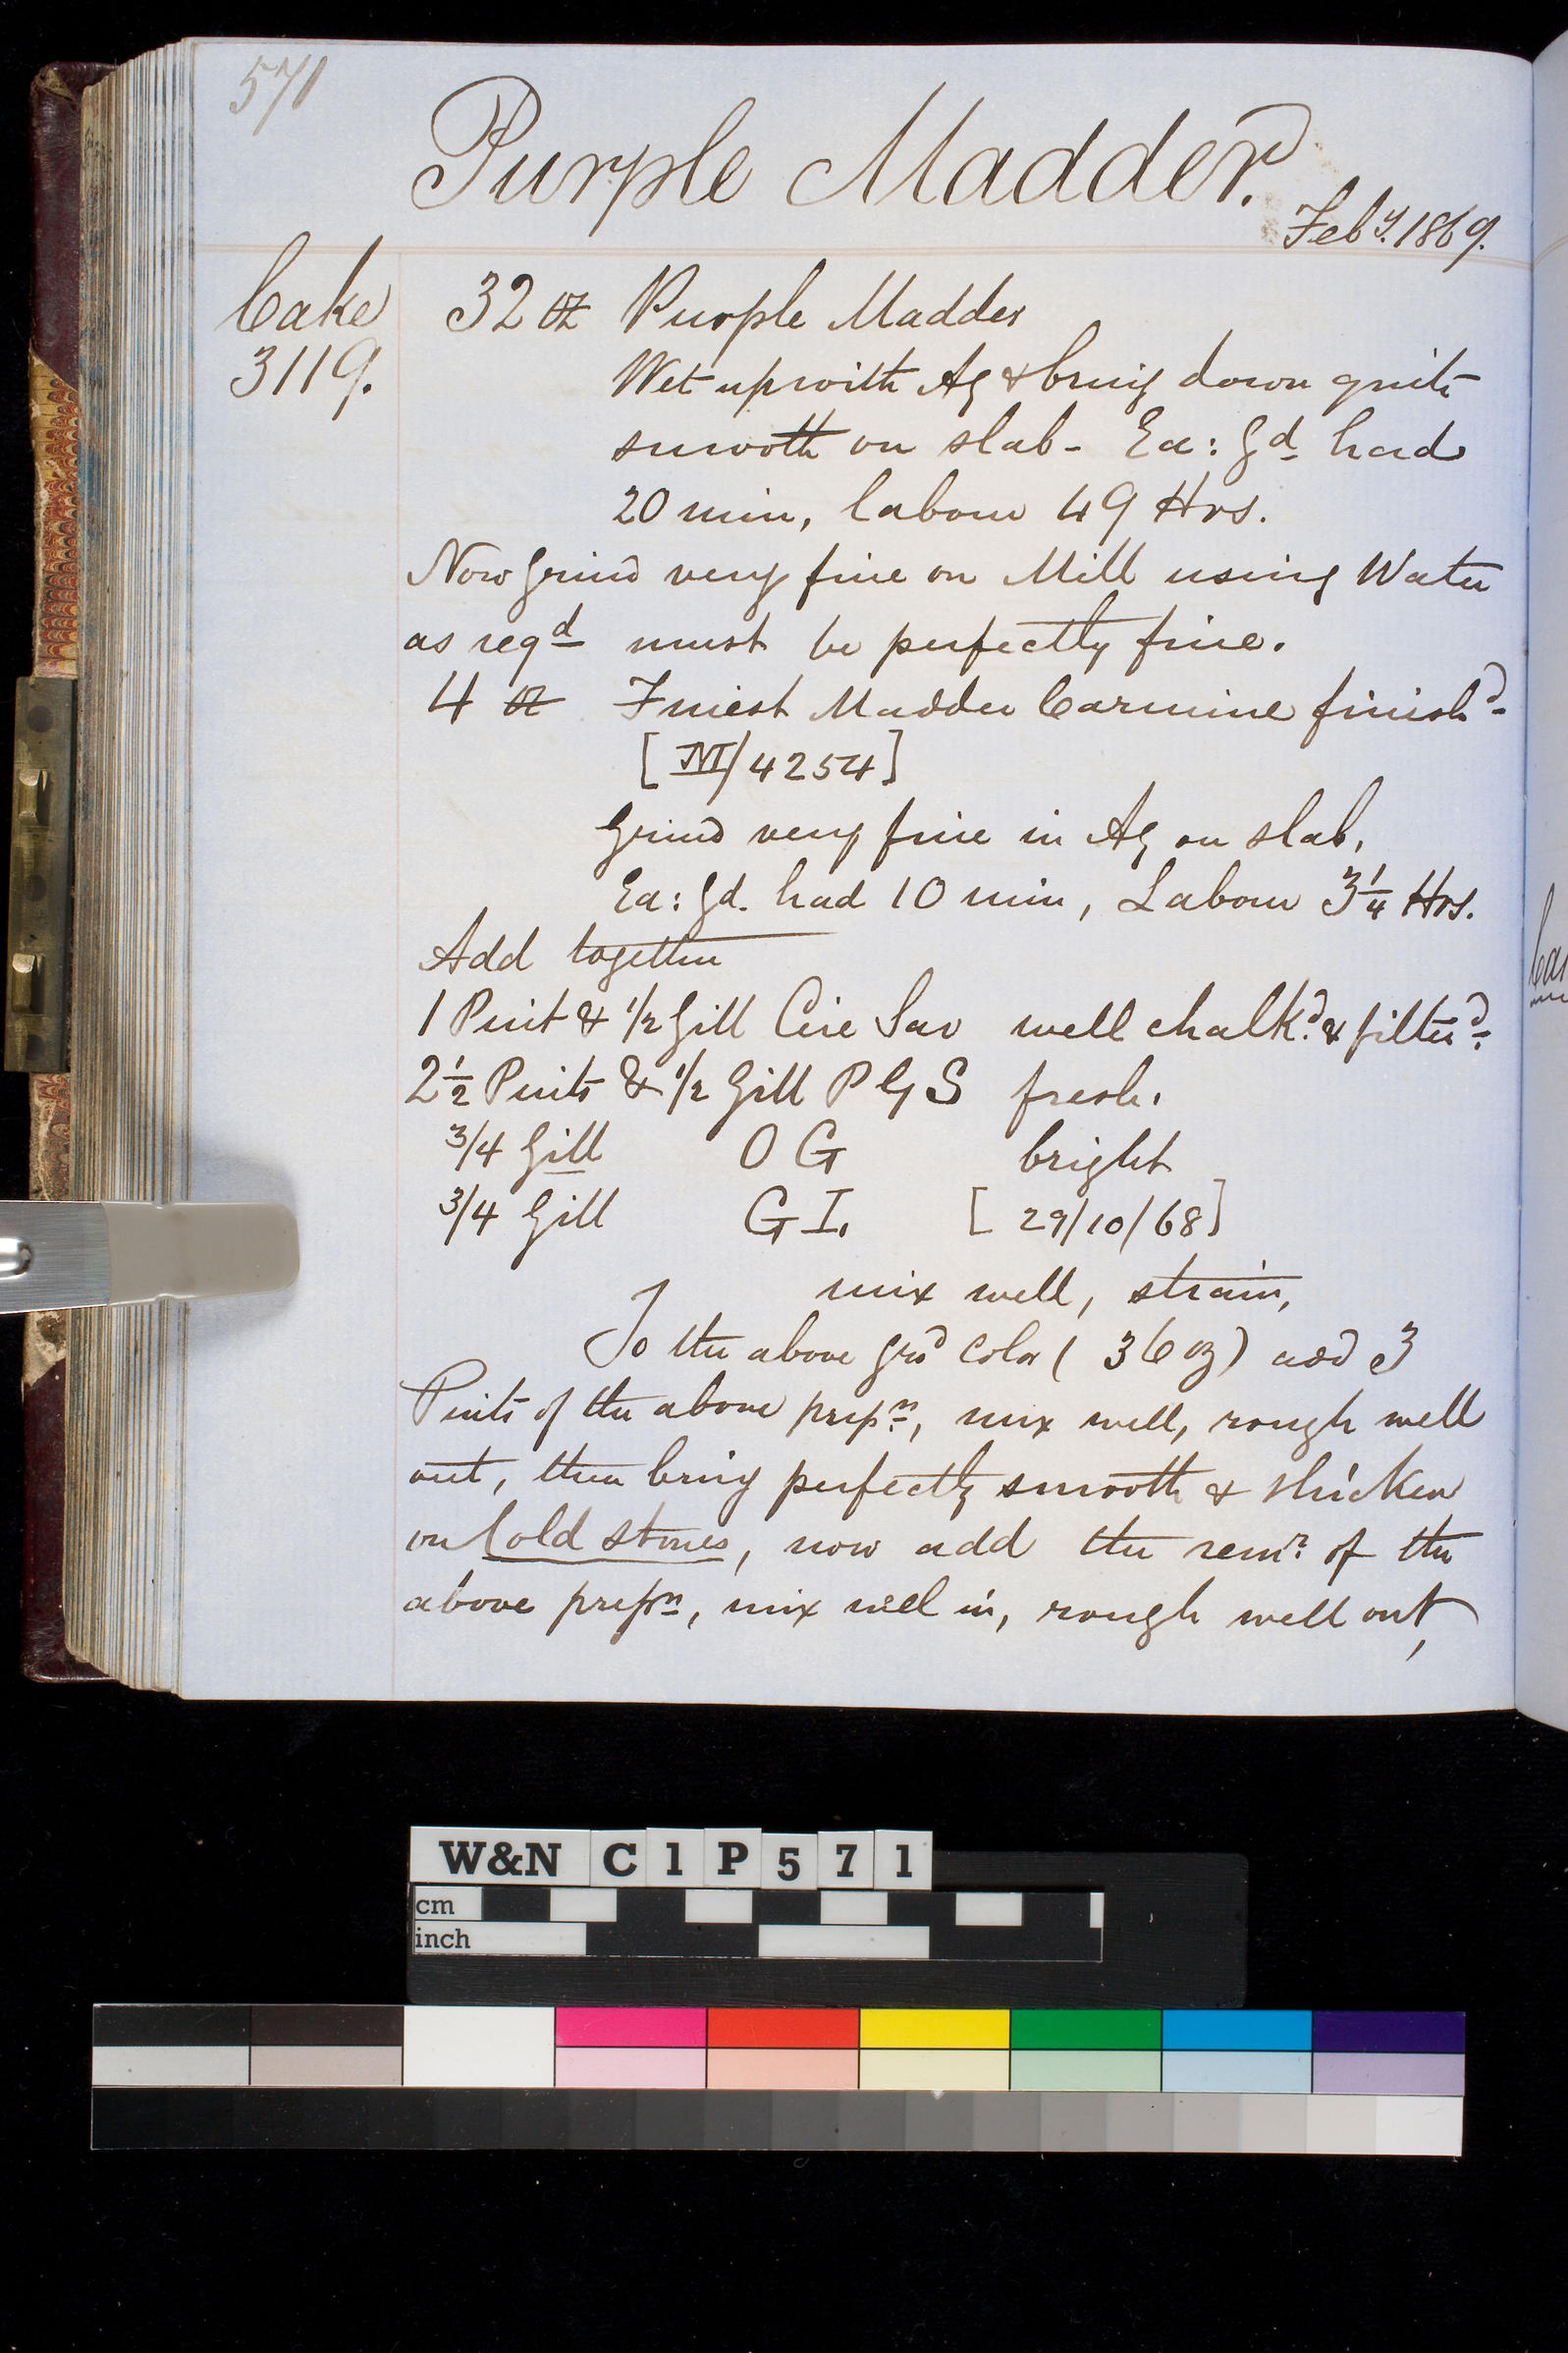 571
Purple Madder.
Feb.y 1869.
Cake
3119.
32 oz Purple Madder
Wet up with Aq & bring down quite
smooth on slab - Ea: Gd had
20 min, labour 49 Hrs.
Now Grind very fine on Mill using Water
as reqd must be perfectly fine.
4 oz Finest Madder Carmine finishd
[ /4254]
Grind very fine in Aq on slab,
Ea: Gd. had 10 min, Labour 3 1/4 Hrs.
Add together
1 Pint & 1/2 Gill Cire Sav well chalkd. & filterd.
2 1/2 Pints & 1/2 Gill P G S fresh.
3/4 Gill O G bright
3/4 Gill G I. [29/10/68]
mix well, strain,
To the above grd color (36 oz) add 3
Pints of the above prepn., mix well, rough well
out, then bring perfectly smooth & thicken
on Cold stones, now add the remr. of the
above prepn, mix well in, rough well out,
Ca
W&N C1P571
cm
inch